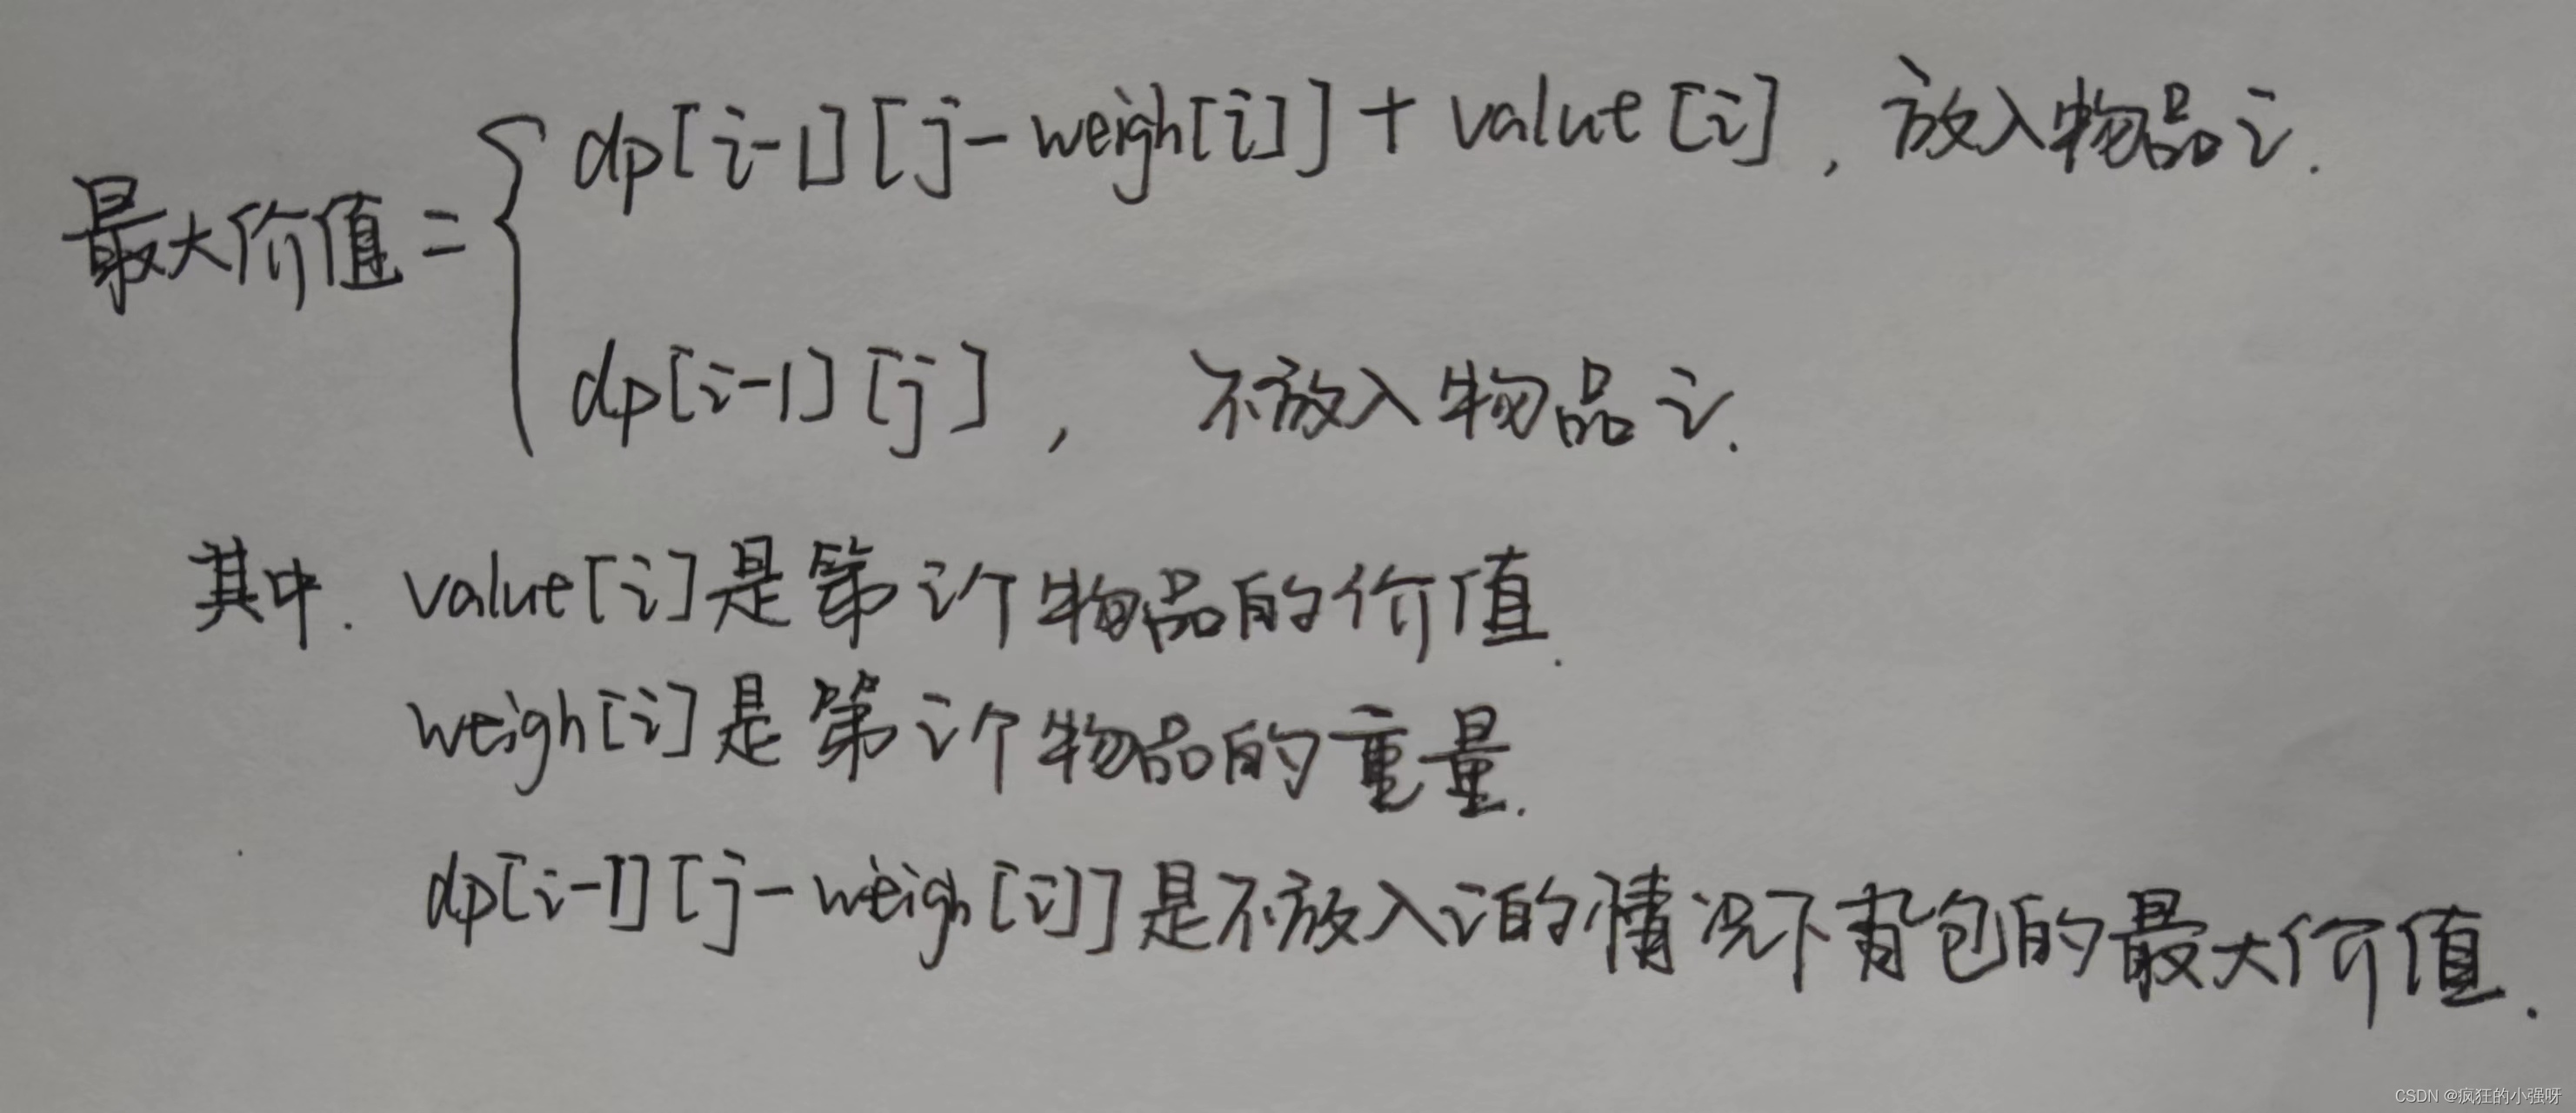 最大价值 = { dp[i-1][j-weigh[i]] + value[i], 放入物品i.
dp[i-1][j], 不放入物品i.
其中. value[i]是第i个物品的价值.
weigh[i]是第i个物品的重量.
dp[i-1][j-weigh[i]]是不放入i的情况下背包的最大价值.
CSDN @疯狂的小强呀